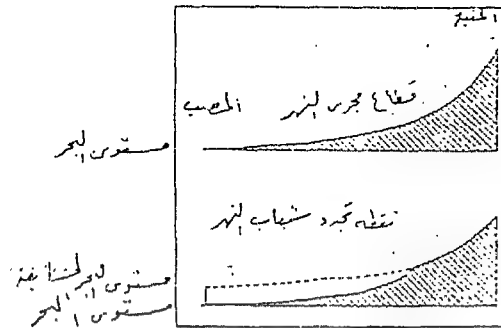 المنبع
قطاع مجرى النهر
المصب
مستوى البحر
نقطة تجدد شباب النهر
مستوى البحر
مستوى البحر